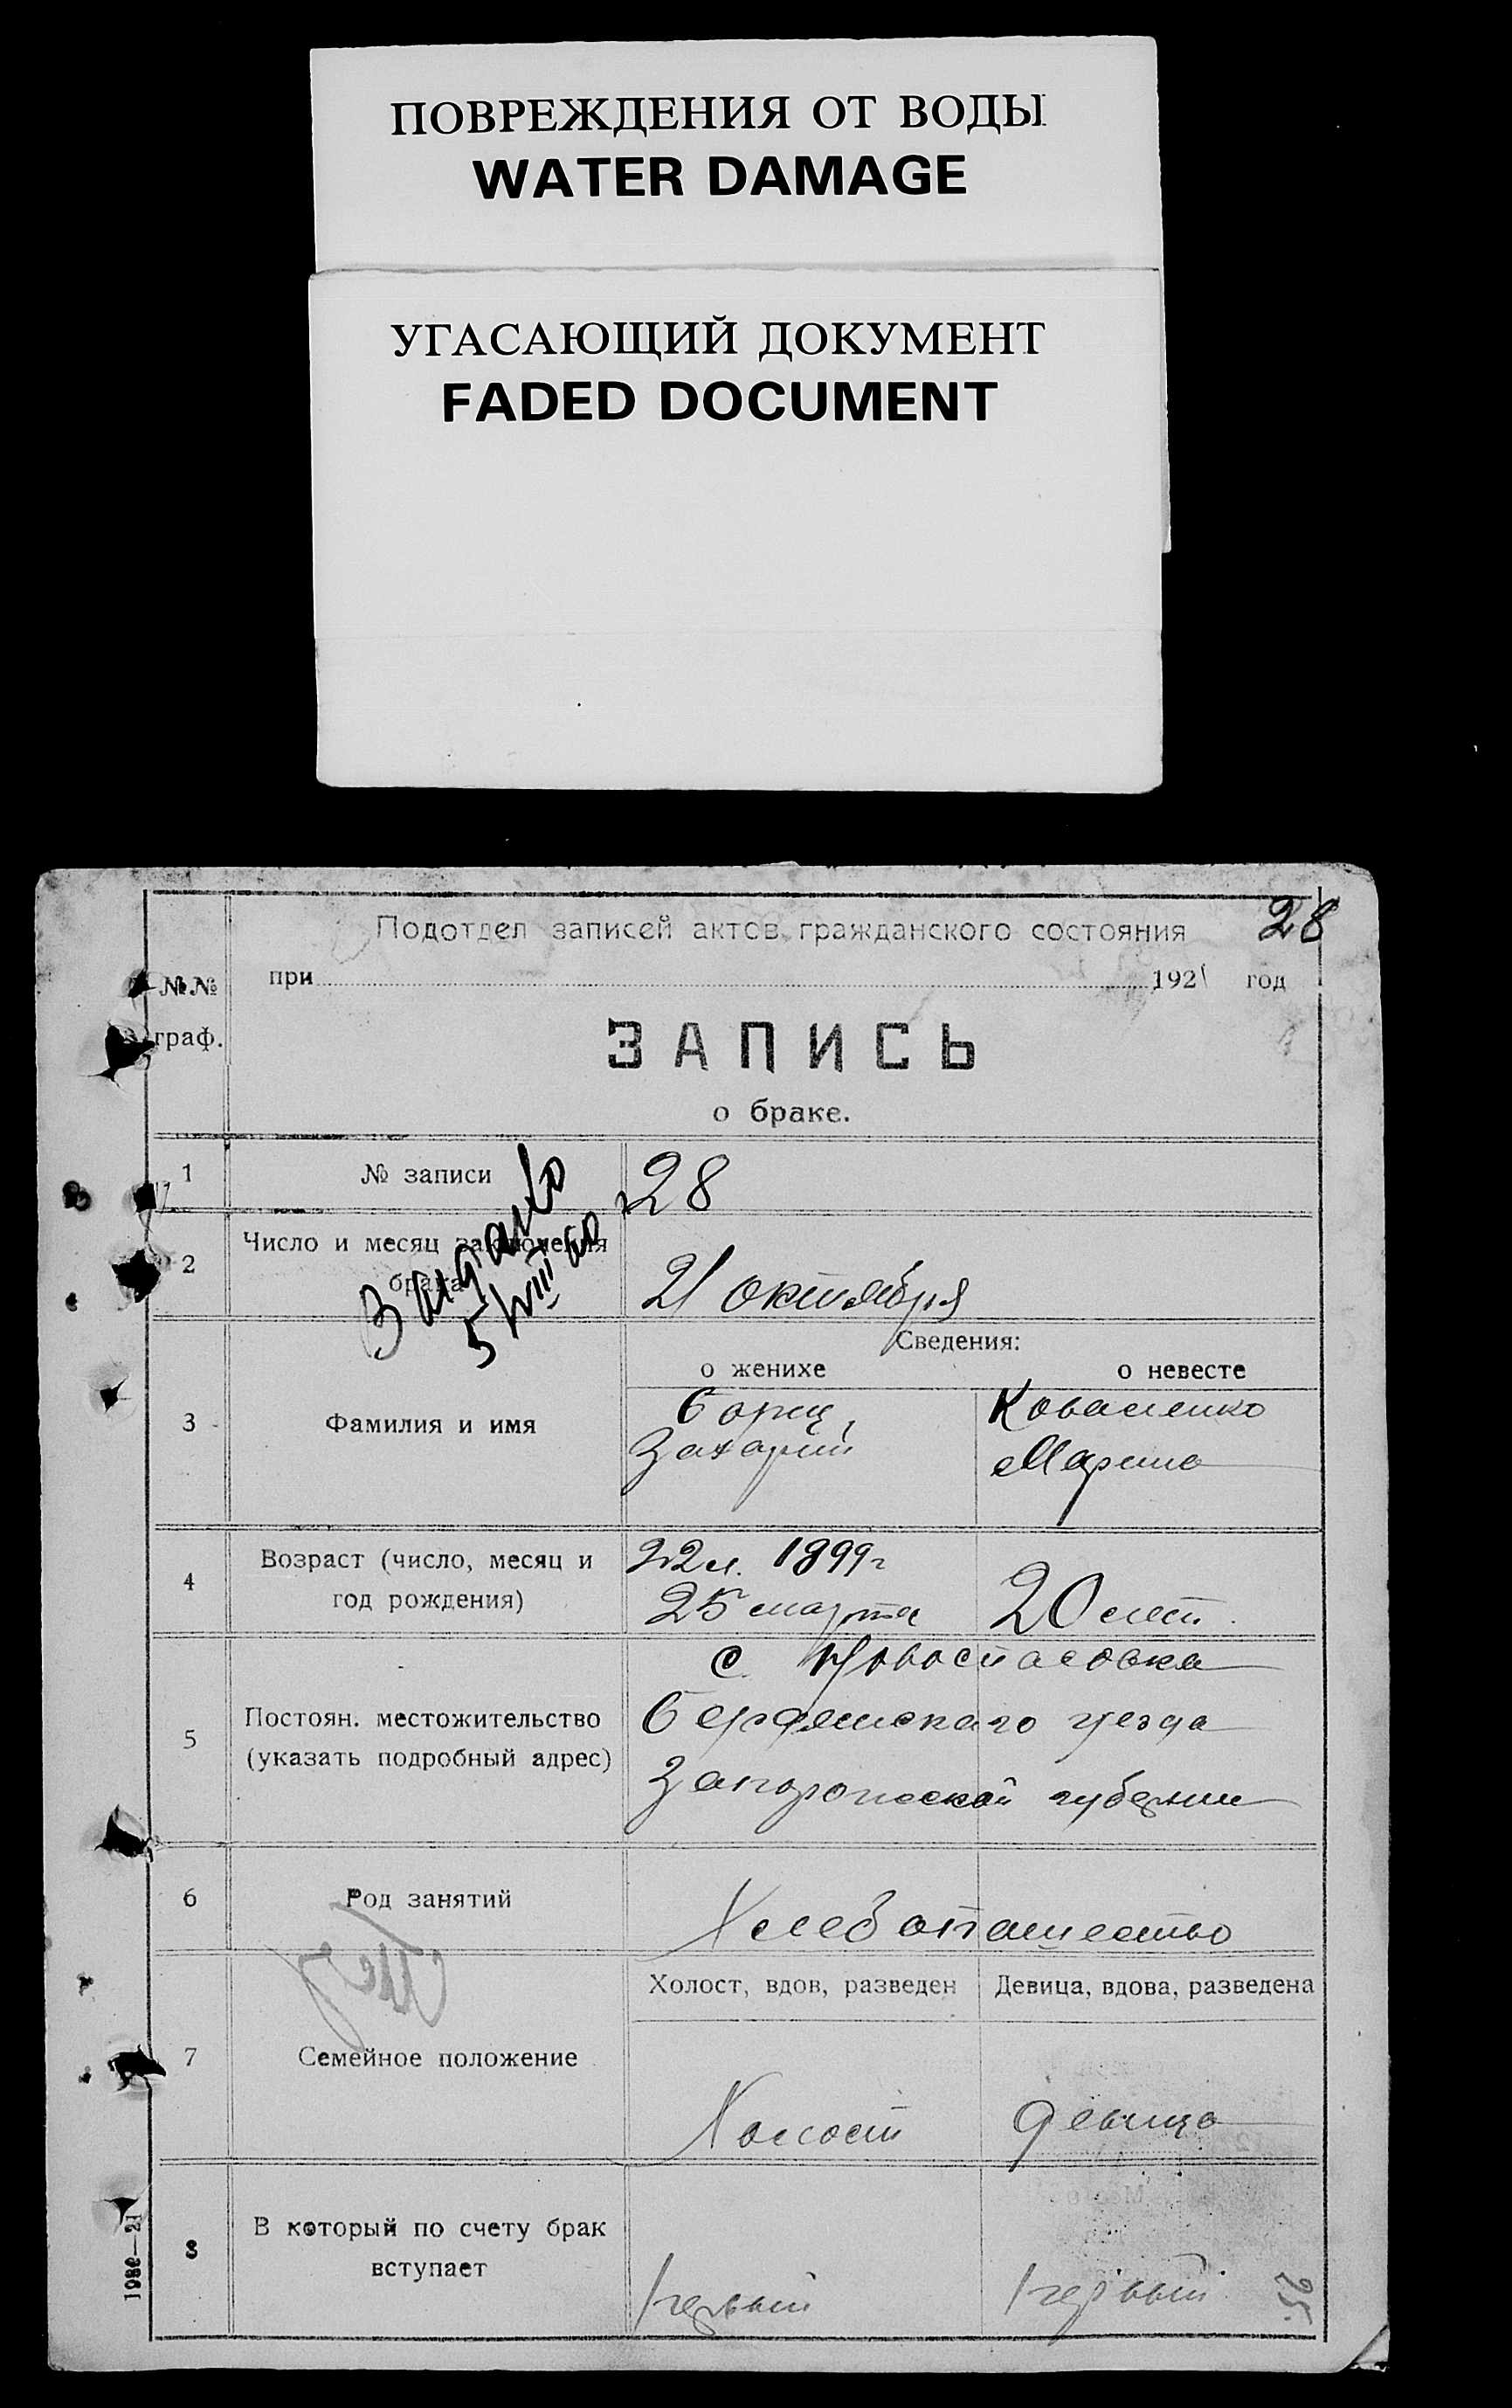 ПОВРЕЖДЕНИЯ ОТ ВОДЫ
WATER DAMAGE
УГАСАЮЩИЙ ДОКУМЕНТ
FADED DOCUMENT
28
Подотдел записей актов гражданского состояния
№№ граф.
при 1921 год
ЗАПИСЬ
о браке.
1 № записи 28
2 Число и месяц заключения брака 21 октября
5/VIII
Сведения:
о женихе о невесте
3 Фамилия и имя
Борец, Коваленко
Захарий Марина
4 Возраст (число, месяц и год рождения)
22 л. 1899 г
25 марта 20 лет
5 Постоян. местожительство (указать подробный адрес)
с. Новоспасовка
Бердянскаго уезда
Запорожской губернии
6 Род занятий Хлебопашество
Холост, вдов, разведен Девица, вдова, разведена
7 Семейное положение
Холост девица
8 В который по счету брак вступает
первый первый
25.